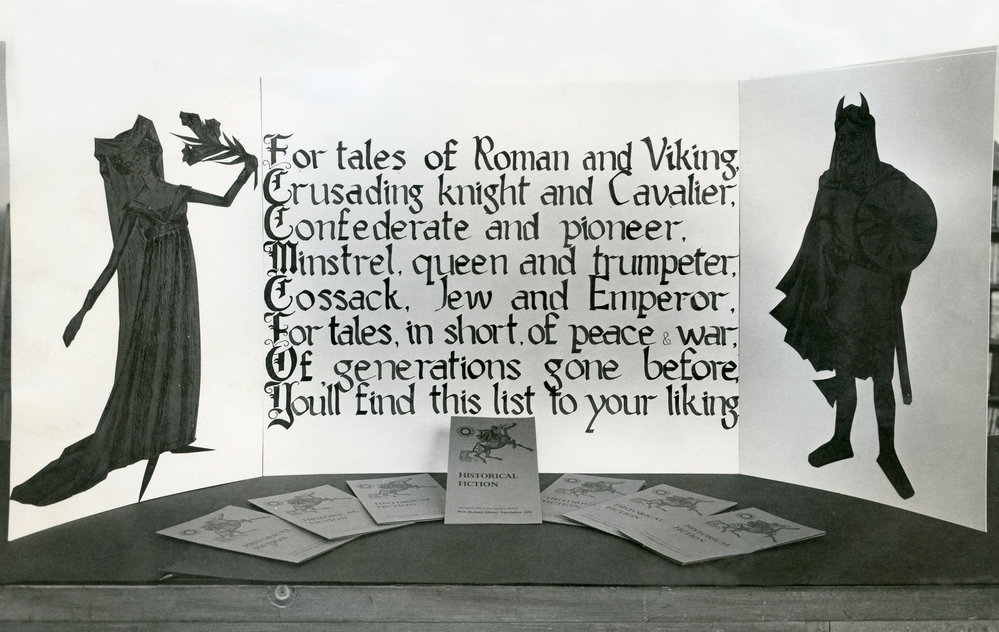 For tales of Roman and Viking,
Crusading knight and Cavalier,
Confederate and pioneer,
Minstrel, queen and trumpeter,
Cossack, Jew and Emperor,
For tales, in short, of peace & war,
Of generations gone before,
You'll find this list to your liking
HISTORICAL
FICTION
New Zealand Library Association
HISTORICAL
FICTION
HISTORICAL
FICTION
HISTORICAL
FICTION
HISTORICAL
FICTION
HISTORICAL
FICTION
HISTORICAL
FICTION